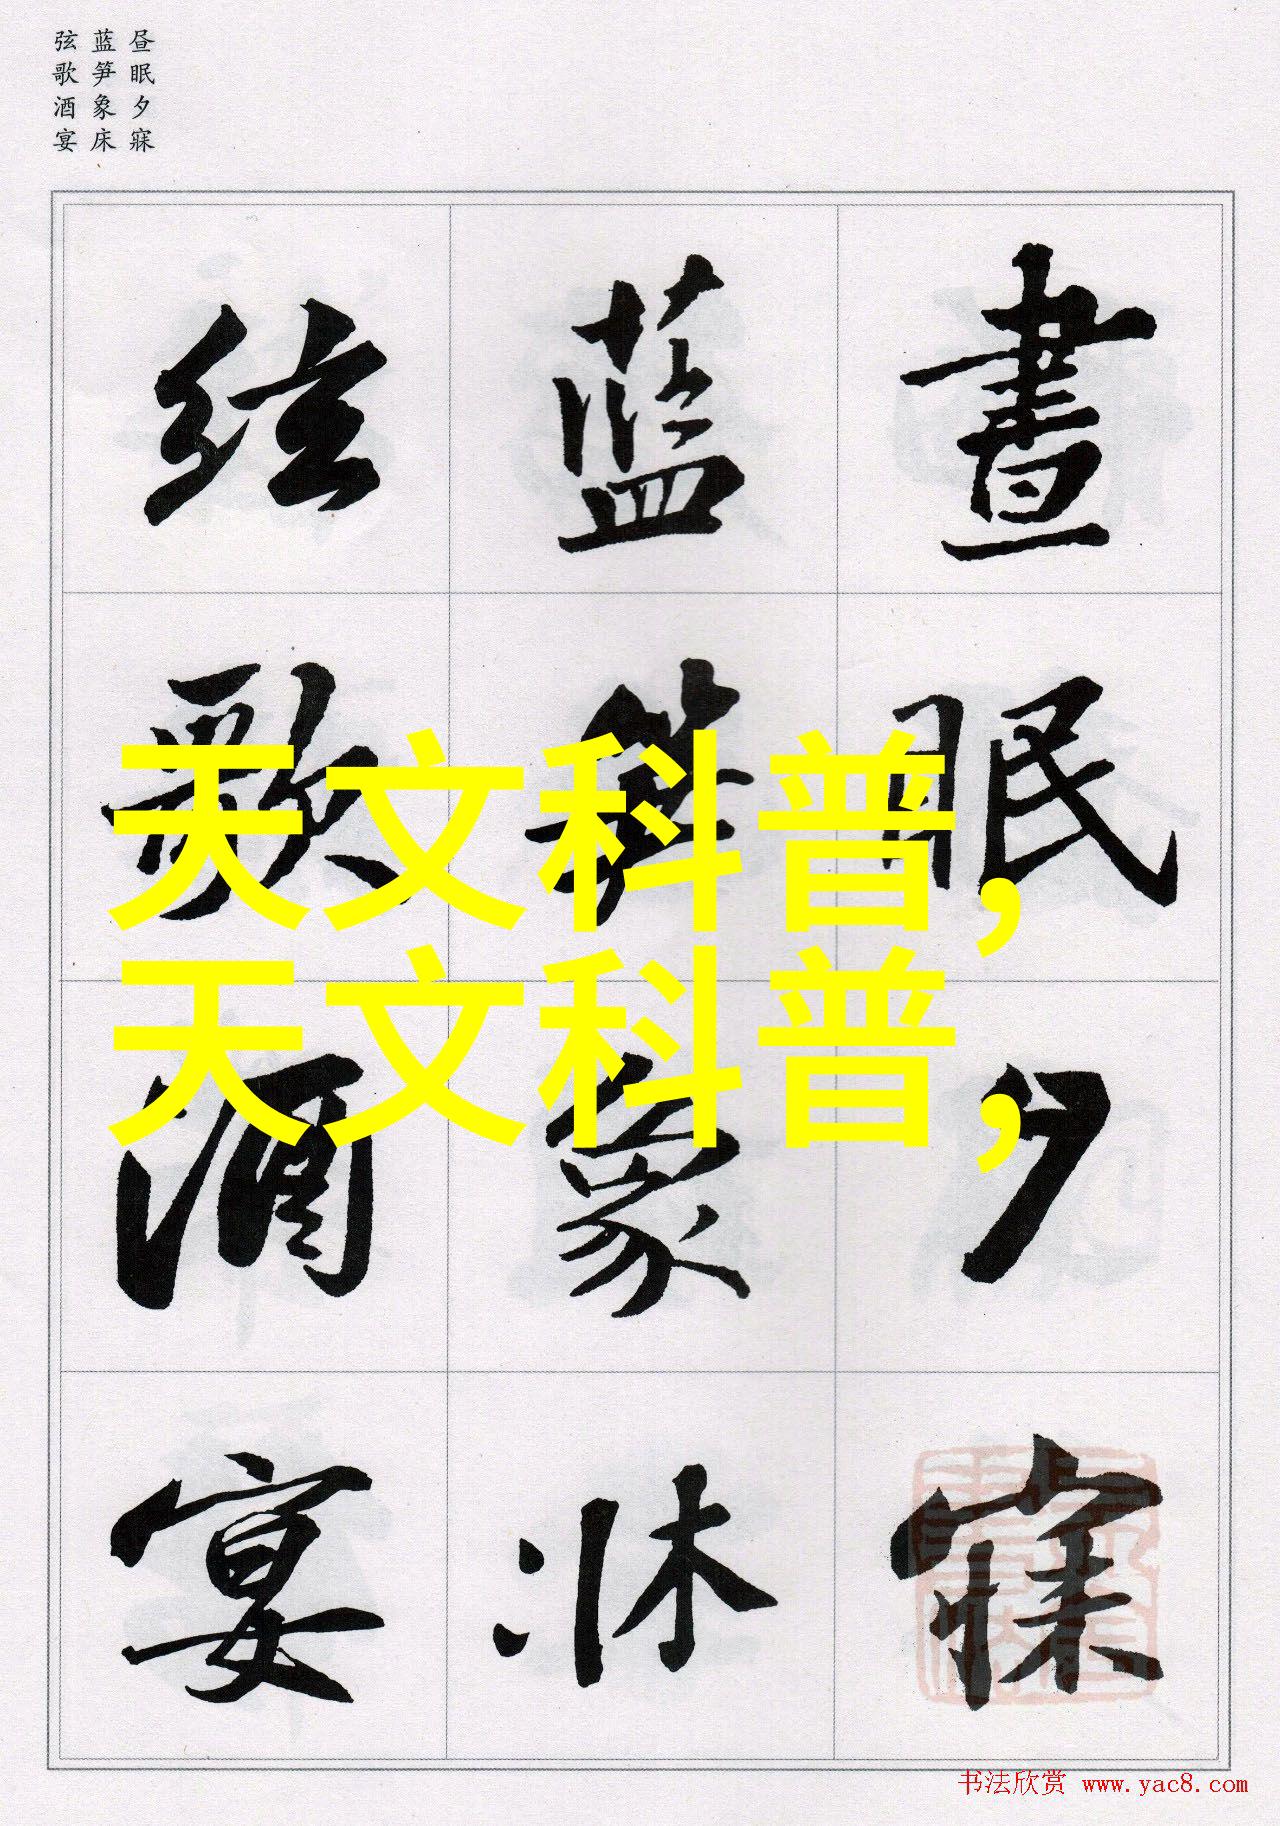 昼眠夕寐
蓝笋象床
弦歌酒宴
晝眠夕寐
藍笋象牀
絃歌酒宴
天文科普,
天文科普,
书法欣赏 www.yac8.com